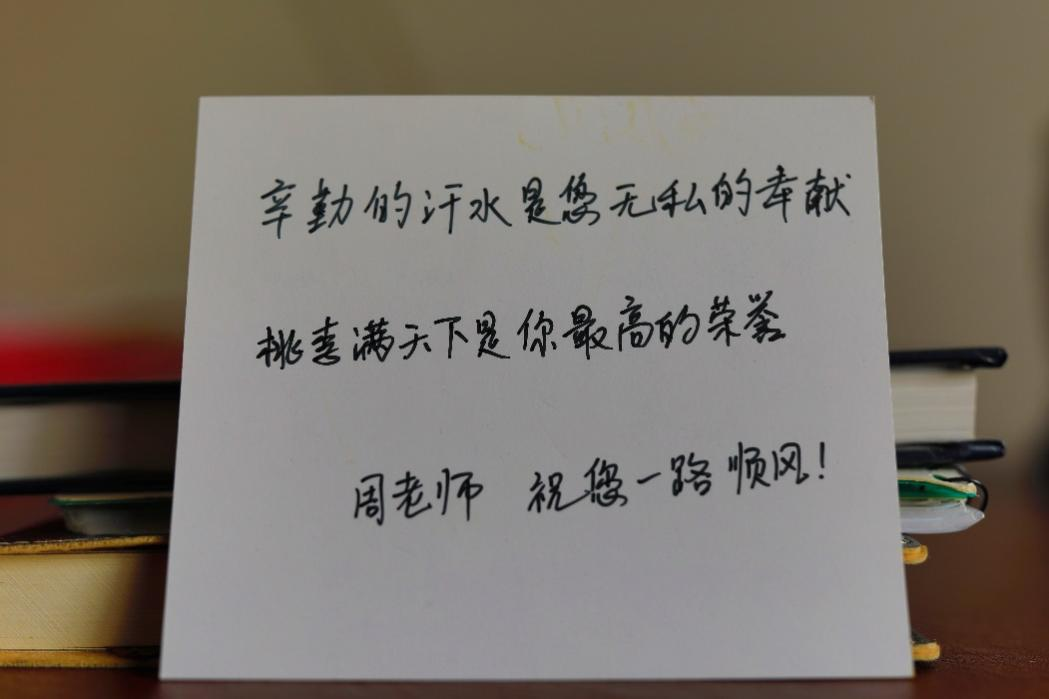 辛勤的汗水是您无私的奉献
桃李满天下是你最高的荣誉
周老师 祝您一路顺风!